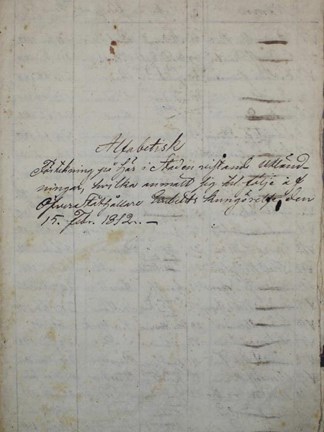 Alfabetisk
Förtekning på här i Staden vistande Utländ-
ningar, hvilka anmält sig til följe af
Öfverståthållare Embetets Kungörelse, den
15. Febr. 1812.-